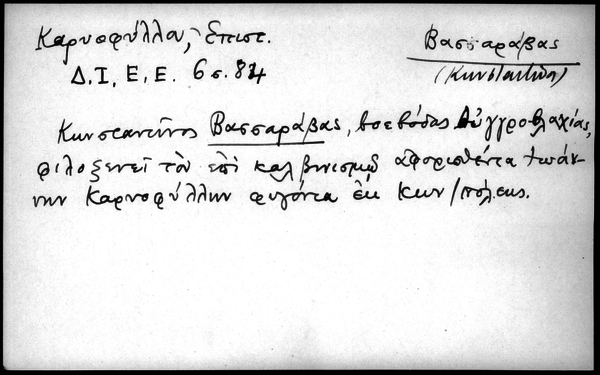 Καρυοφύλλου, Επιστ.
Βασσαράβας
(Κωνσταντίνος)
Δ. Ι. Ε. Ε. 6 σ. 84
Κωνσταντῖνος Βασσαράβας, βοεβόδας Οὐγγροβλαχίας,
φιλοξενεῖ τὸν ἐπὶ καλβινισμῷ ἀφορισθέντα Ἰωάν-
νην Καρυοφύλλην φυγόντα ἐκ Κων/πόλεως.